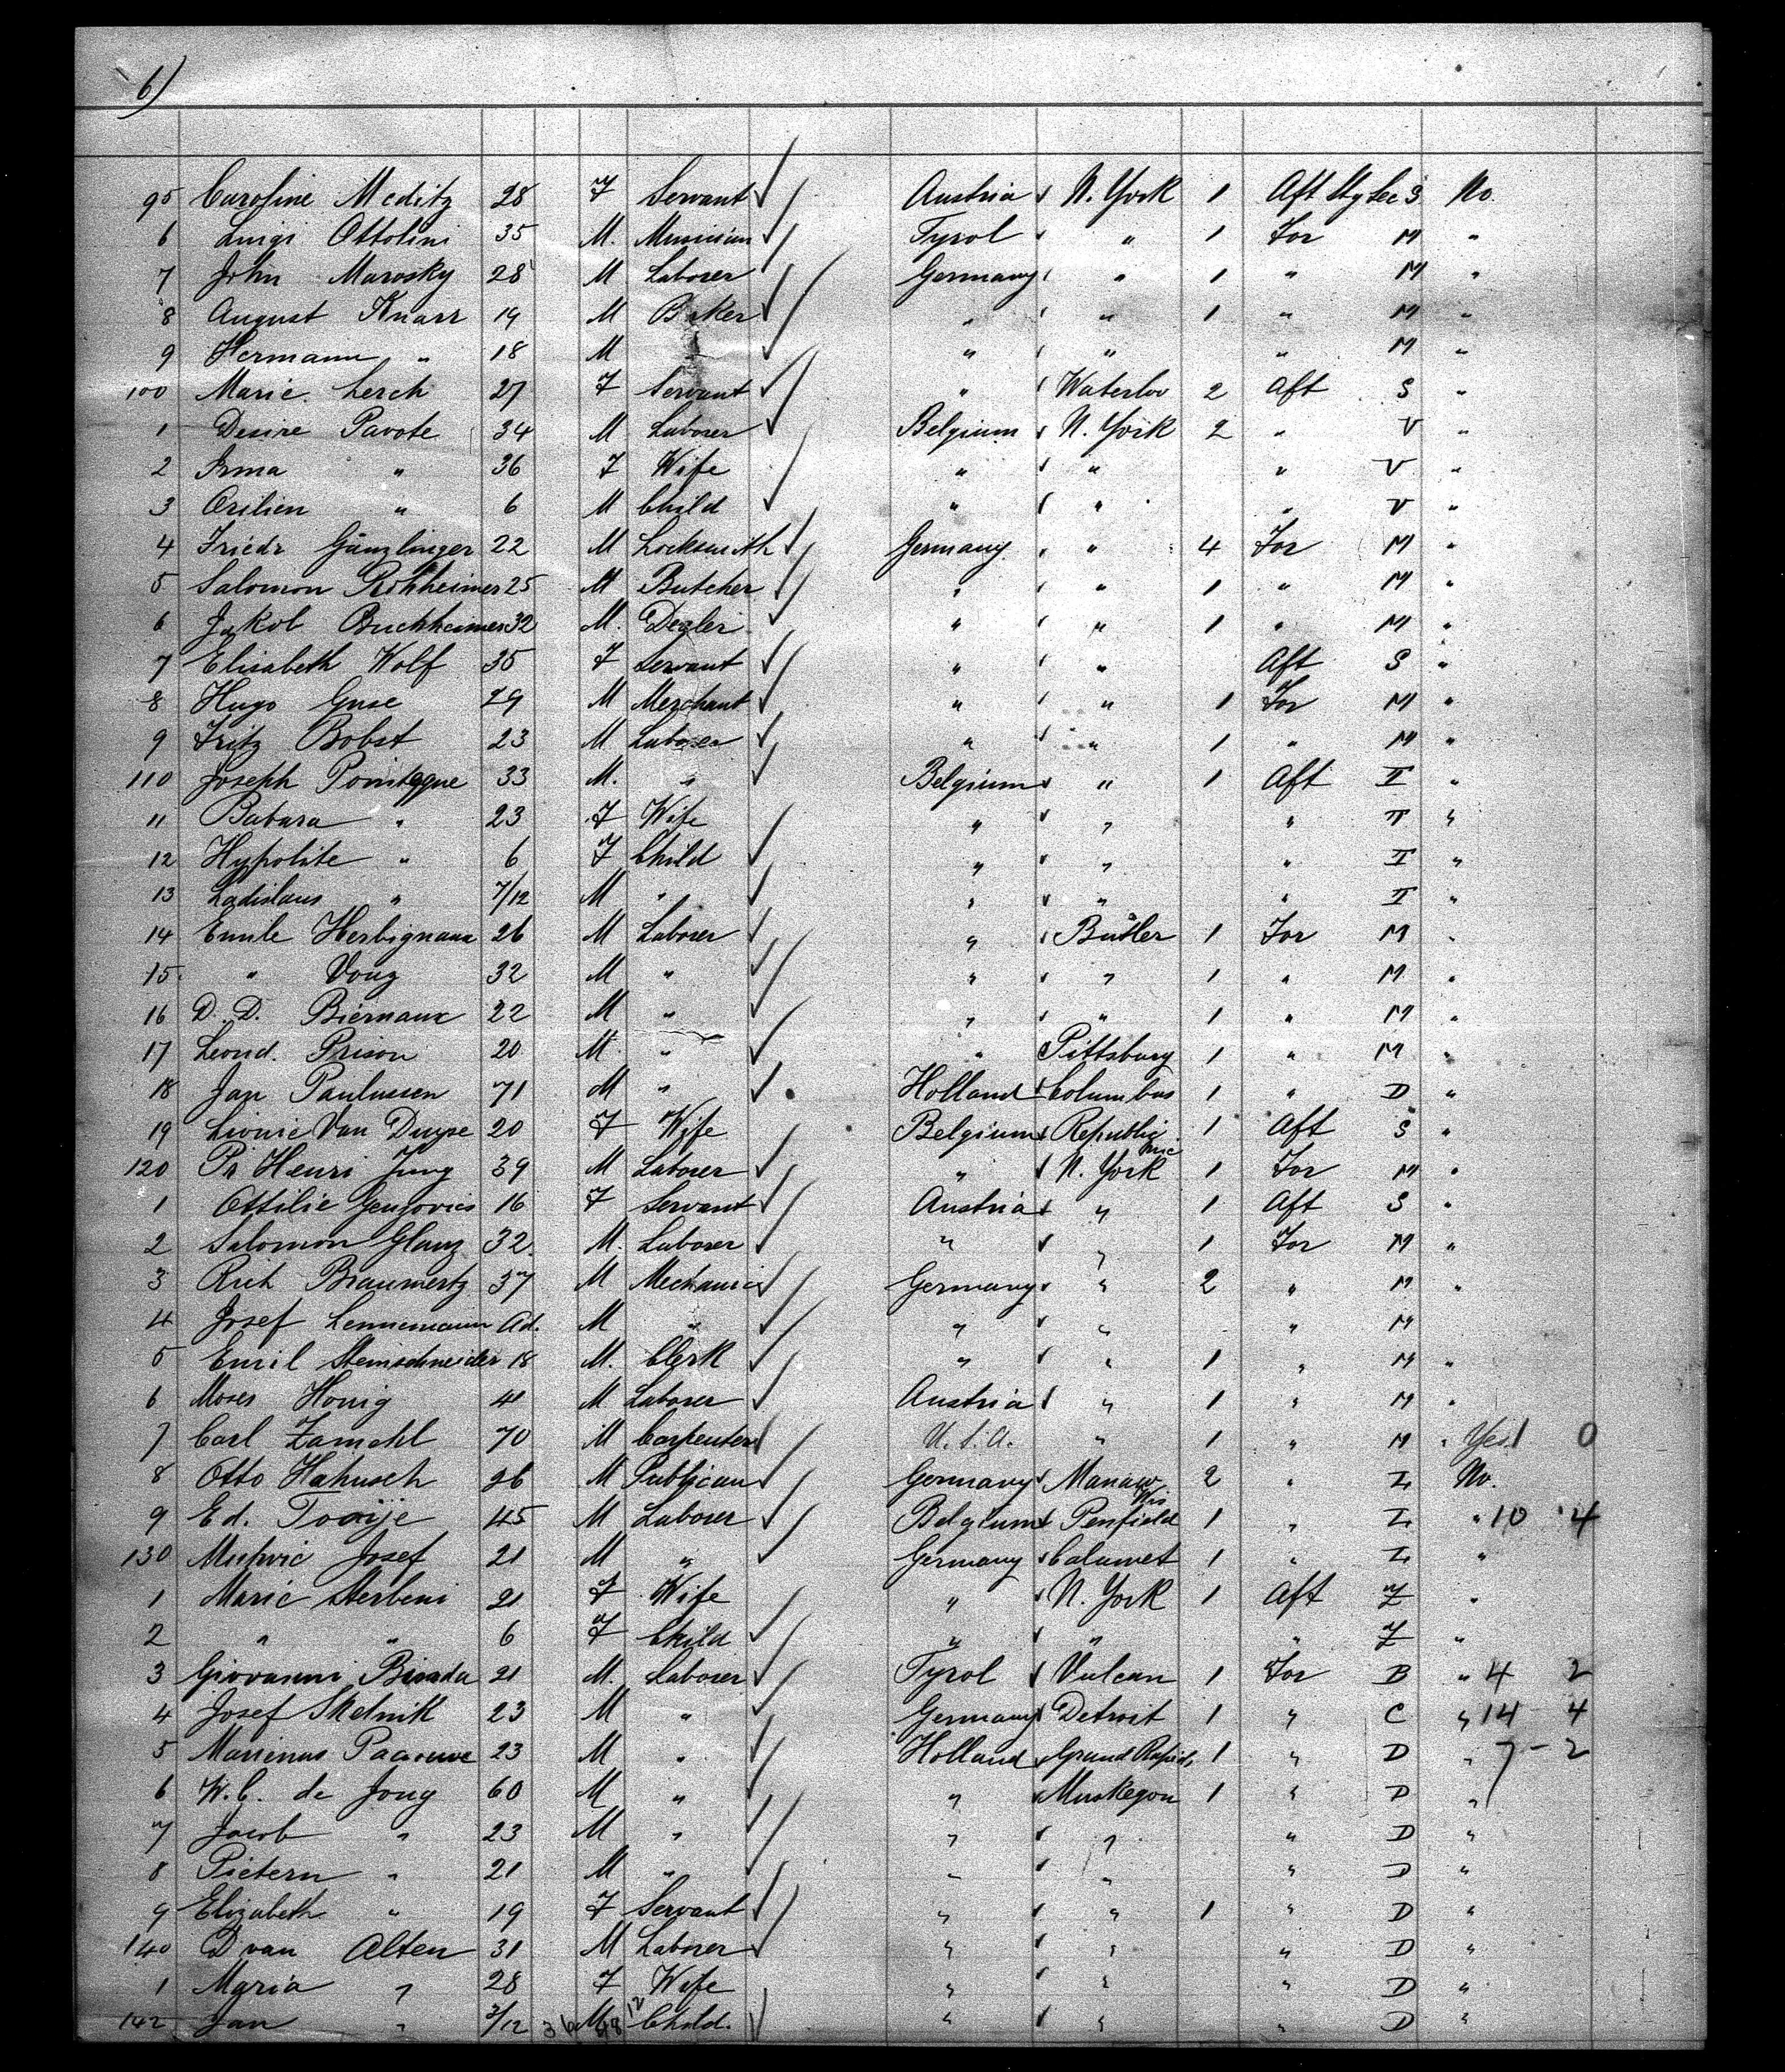 6)
95 Caroline Meditz 28 F Servant Austria N. York 1 Aft Stg Sec S No.
6 Luigi Ottolini 35 M. Musician Tyrol " 1 For M "
7 John Marosky 28 M Laborer Germany " 1 " M "
8 August Knarr 19 M Baker " " 1 " M "
9 Hermann " 18 M " " " " M "
100 Marie Lerch 27 F Servant " Waterloo 2 Aft S "
1 Desire Pavote 34 M Laborer Belgium N. York 2 " V "
2 Irma " 36 F Wife " " " V "
3 " 6 M Child " " " V "
4 Friedr Gänzlinger 22 M Locksmith Germany " 4 For M "
5 Salomon 25 M Butcher " " 1 " M "
6 Jakob Buchheimer 32 M. " " 1 " M "
7 Elisabeth Wolf 35 F Servant " " Aft S "
8 Hugo Guse 29 M Merchant " " 1 For M "
9 Fritz Bobst 23 M Laborer " " 1 " M "
110 Joseph 33 M. " Belgium " 1 Aft "
11 Babara " 23 F Wife " " " "
12 Hypolite " 6 F Child " " " "
13 Ladislaus " 7/12 M " " " " "
14 Emile Herbignaux 26 M Laborer " Butler 1 For M "
15. " Vouz 32 M " " " 1 " M "
16 D. D. Biernaux 22 M " " " 1 " M "
17 Leond. Prison 20 M " " Pittsburg 1 " M "
18 Jan Paulussen 71 M " Holland Columbus 1 " D "
19 Leonie Van Duyse 20 F Wife Belgium Republic Mic 1 Aft S "
120 Henri Jung 39 M Laborer " N. York 1 For M "
1 Ottilie 16 F Servant Austria " 1 Aft S "
2 Salomon Glanz 32. M. Laborer " " 1 For M "
3 Rich Braumertz 37 M Mechanic Germany " 2 " M "
4 Josef Lennemann Ad. M " " " " M
5 Emil Steinschneider 18 M. Clerk " " 1 " M "
6 Moses Honig 41 M Laborer Austria " 1 " M "
7 Carl Zamehl 70 M Carpenter U. S. A. " 1 " M " Yes 1 0
8 Otto Hahusch 26 M Publican Germany Manaw Wis 2 " No.
9 Ed. 45 M Laborer Belgium Penfield 1 " " 10 4
130 Josef 21 M " Germany Calumet 1 " "
1 Marie Sterbeni 21 F Wife " N. York 1 Aft Z "
2 " " 6 F Child " " " Z "
3 Giovanni 21 M. Laborer Tyrol Vulcan 1 For B " 4 2
4 Josef Skebnik 23 M " Germany Detroit 1 " C " 14 4
5 Marinus 23 M " Holland Grand Rapids 1 " D " 7 - 2
6 W. C. de Jong 60 M " " Muskegon 1 " D "
7 Jacob " 23 M " " " " D "
8 Pietern " 21 M " " " " D "
9 Elizabeth " 19 F Servant " " 1 " D "
140 D van Alten 31 M Laborer " " " D "
1 Maria " 28 F Wife " " " D "
142 Jan " 3/12 36 M 48 12 Child. " " " D "